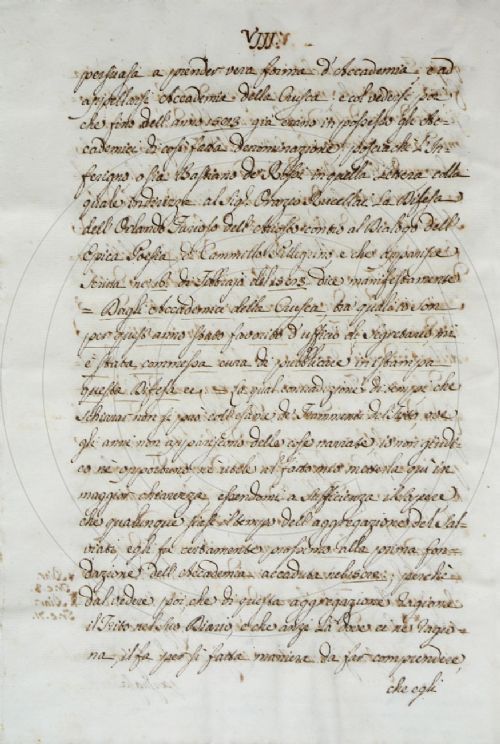 VIII.
persuasa a prender vera forma d'Accademia, e ad
appellarsi Accademia della Crusca: e col vedersi poi
che fino dell'anno già erano in possesso gli Ac-
cademici di così fatta denominazione; posciachè l'In-
ferigno o sia Bastiano de' Rossi in quella lettera colla
quale indirizza al Sig. Orazio Rucellai la Difesa
dell'Orlando Furioso dell'Ariosto contro al Dialogo dell'
Epica Poesia di Cammillo Pellegrino e che apparisce
scritta ne' 16. di Febbrajo dice manifestamente
= Dagli Accademici della Crusca tra' quali io son
per quest'anno stato favorito d'ufficio di Segretario mi
è stata commessa cura di pubblicare in istampa
questa Difesa ec. = La qual contradizione di tempi che
schivar non si può coll'osservare de' Frammenti del Trito, ove
gli anni non appariscono delle cose narrate io non giudi-
co nè opportuno nè utile al fatto mio metterla quì in
maggior chiarezza, essendomi a sufficienza il sapere
che qualunque siasi il tempo dell'aggregazione del Sal-
viati egli fu certamente presente alla prima fon-
dazione dell'Accademia accaduta perchè
dal vedere poi che di questa aggregazione ragiona
il Trito nel suo Diario, e che anzi là dove ei ne ragio-
na il fa per sì fatta maniera da far comprendere,
che egli